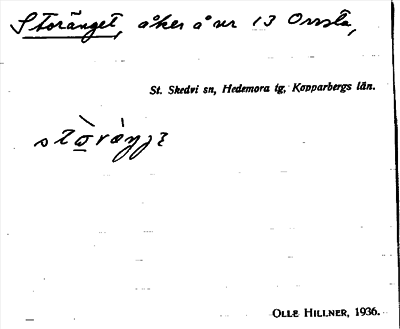 Storänget, åker å nr 13 Onsta,
St. Skedvi sn, Hedemora tg, Kopparbergs län.
OLLE HILLNER, 1936.